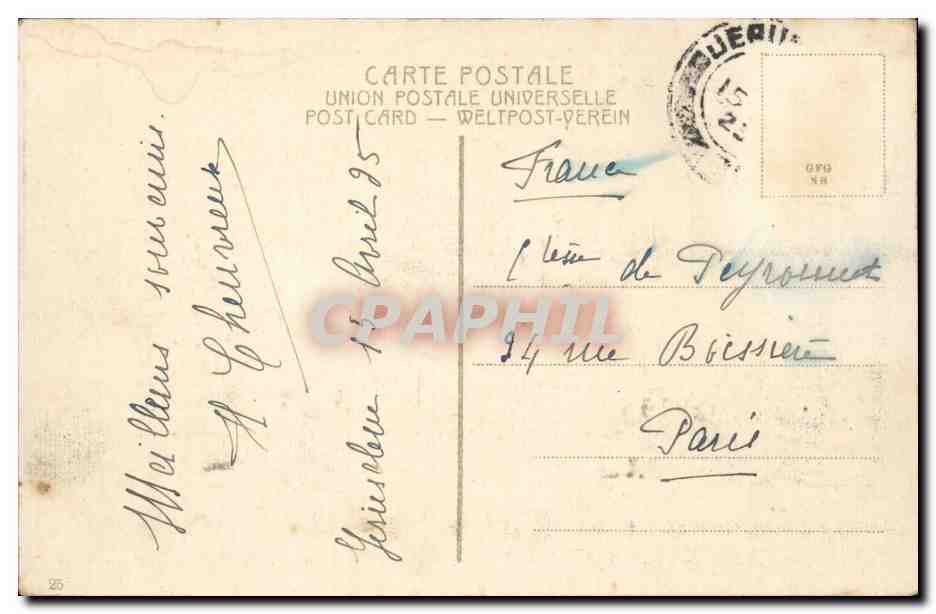 CARTE POSTALE
UNION POSTALE UNIVERSELLE
POST CARD — WELTPOST-VEREIN
Meilleurs souvenirs.
H. Chevreux
Jerusalem 15 Avril 25
France
Ctesse de Peyronnet
24 rue Boissière
Paris
JERU
15
GFG
NH
CPAPHIL
25